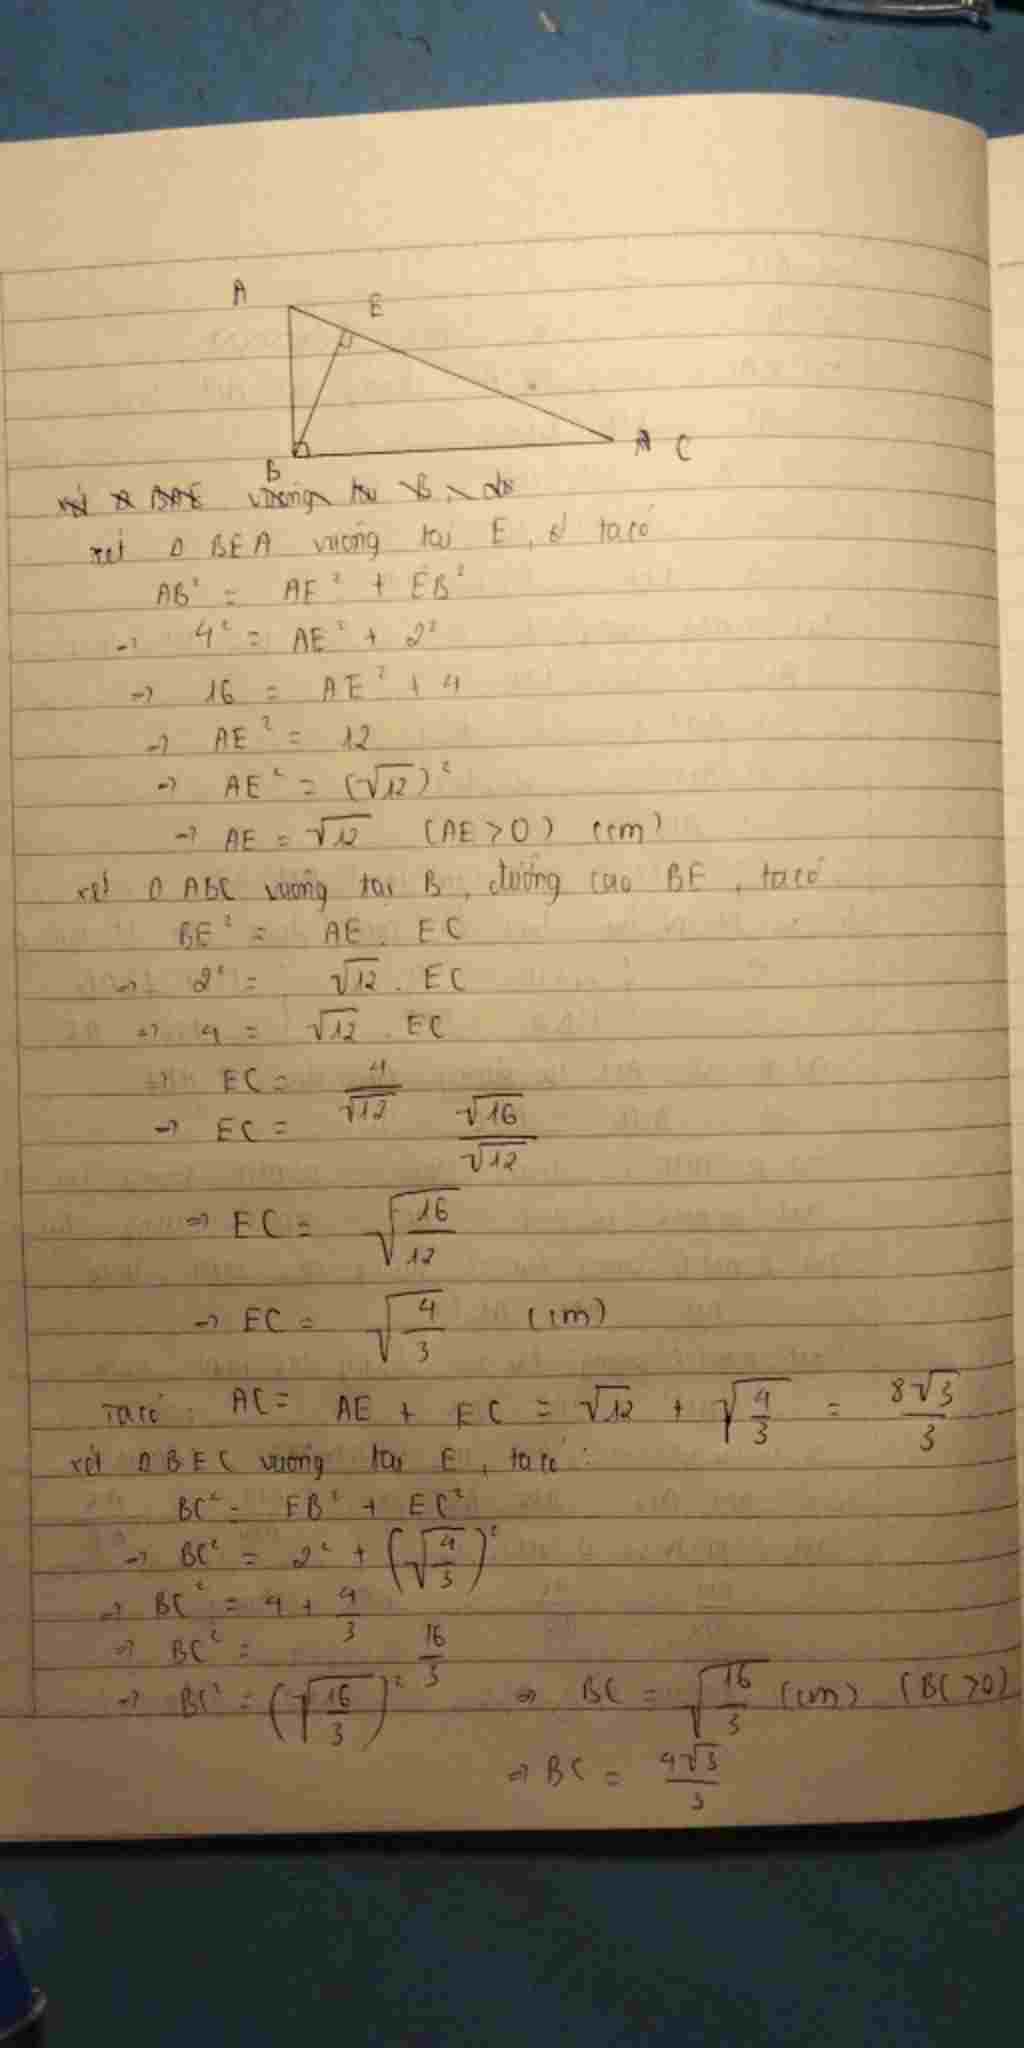 A
E
B
C
xét Δ BEA vuông tại E, ta có
AB² = AE² + EB²
→ 4² = AE² + 2²
→ 16 = AE² + 4
→ AE² = 12
→ AE² = (√12)²
→ AE = √12 (AE > 0) (cm)
xét Δ ABC vuông tại B, đường cao BE, ta có
BE² = AE . EC
→ 2² = √12 . EC
→ 4 = √12 . EC
EC = 4/√12
→ EC = √16/√12
→ EC = √(16/12)
→ EC = √(4/3) (cm)
Ta có : AC = AE + EC = √12 + √(4/3) = 8√3/3
xét Δ BEC vuông tại E, ta có :
BC² = EB² + EC²
→ BC² = 2² + (√(4/3))²
→ BC² = 4 + 4/3
→ BC² = 16/3
→ BC² = (√(16/3))² → BC = √(16/3) (cm) (BC > 0)
→ BC = 4√3/3